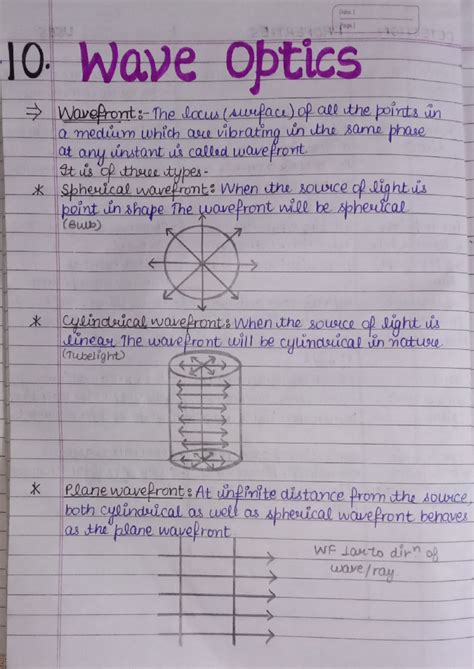 Date:
Page:
10. Wave Optics
⇒ Wavefront:- The locus (surface) of all the points in
a medium which are vibrating in the same phase
at any instant is called wavefront
It is of three types-
* Spherical wavefront: When the source of light is
point in shape The wavefront will be spherical
(Bulb)
* Cylindrical wavefront: When the source of light is
linear The wavefront will be cylindrical in nature
(Tubelight)
* Plane wavefront: At infinite distance from the source
both cylindrical as well as spherical wavefront behaves
as the plane wavefront
WF ⊥ar to dirⁿ of
wave/ray